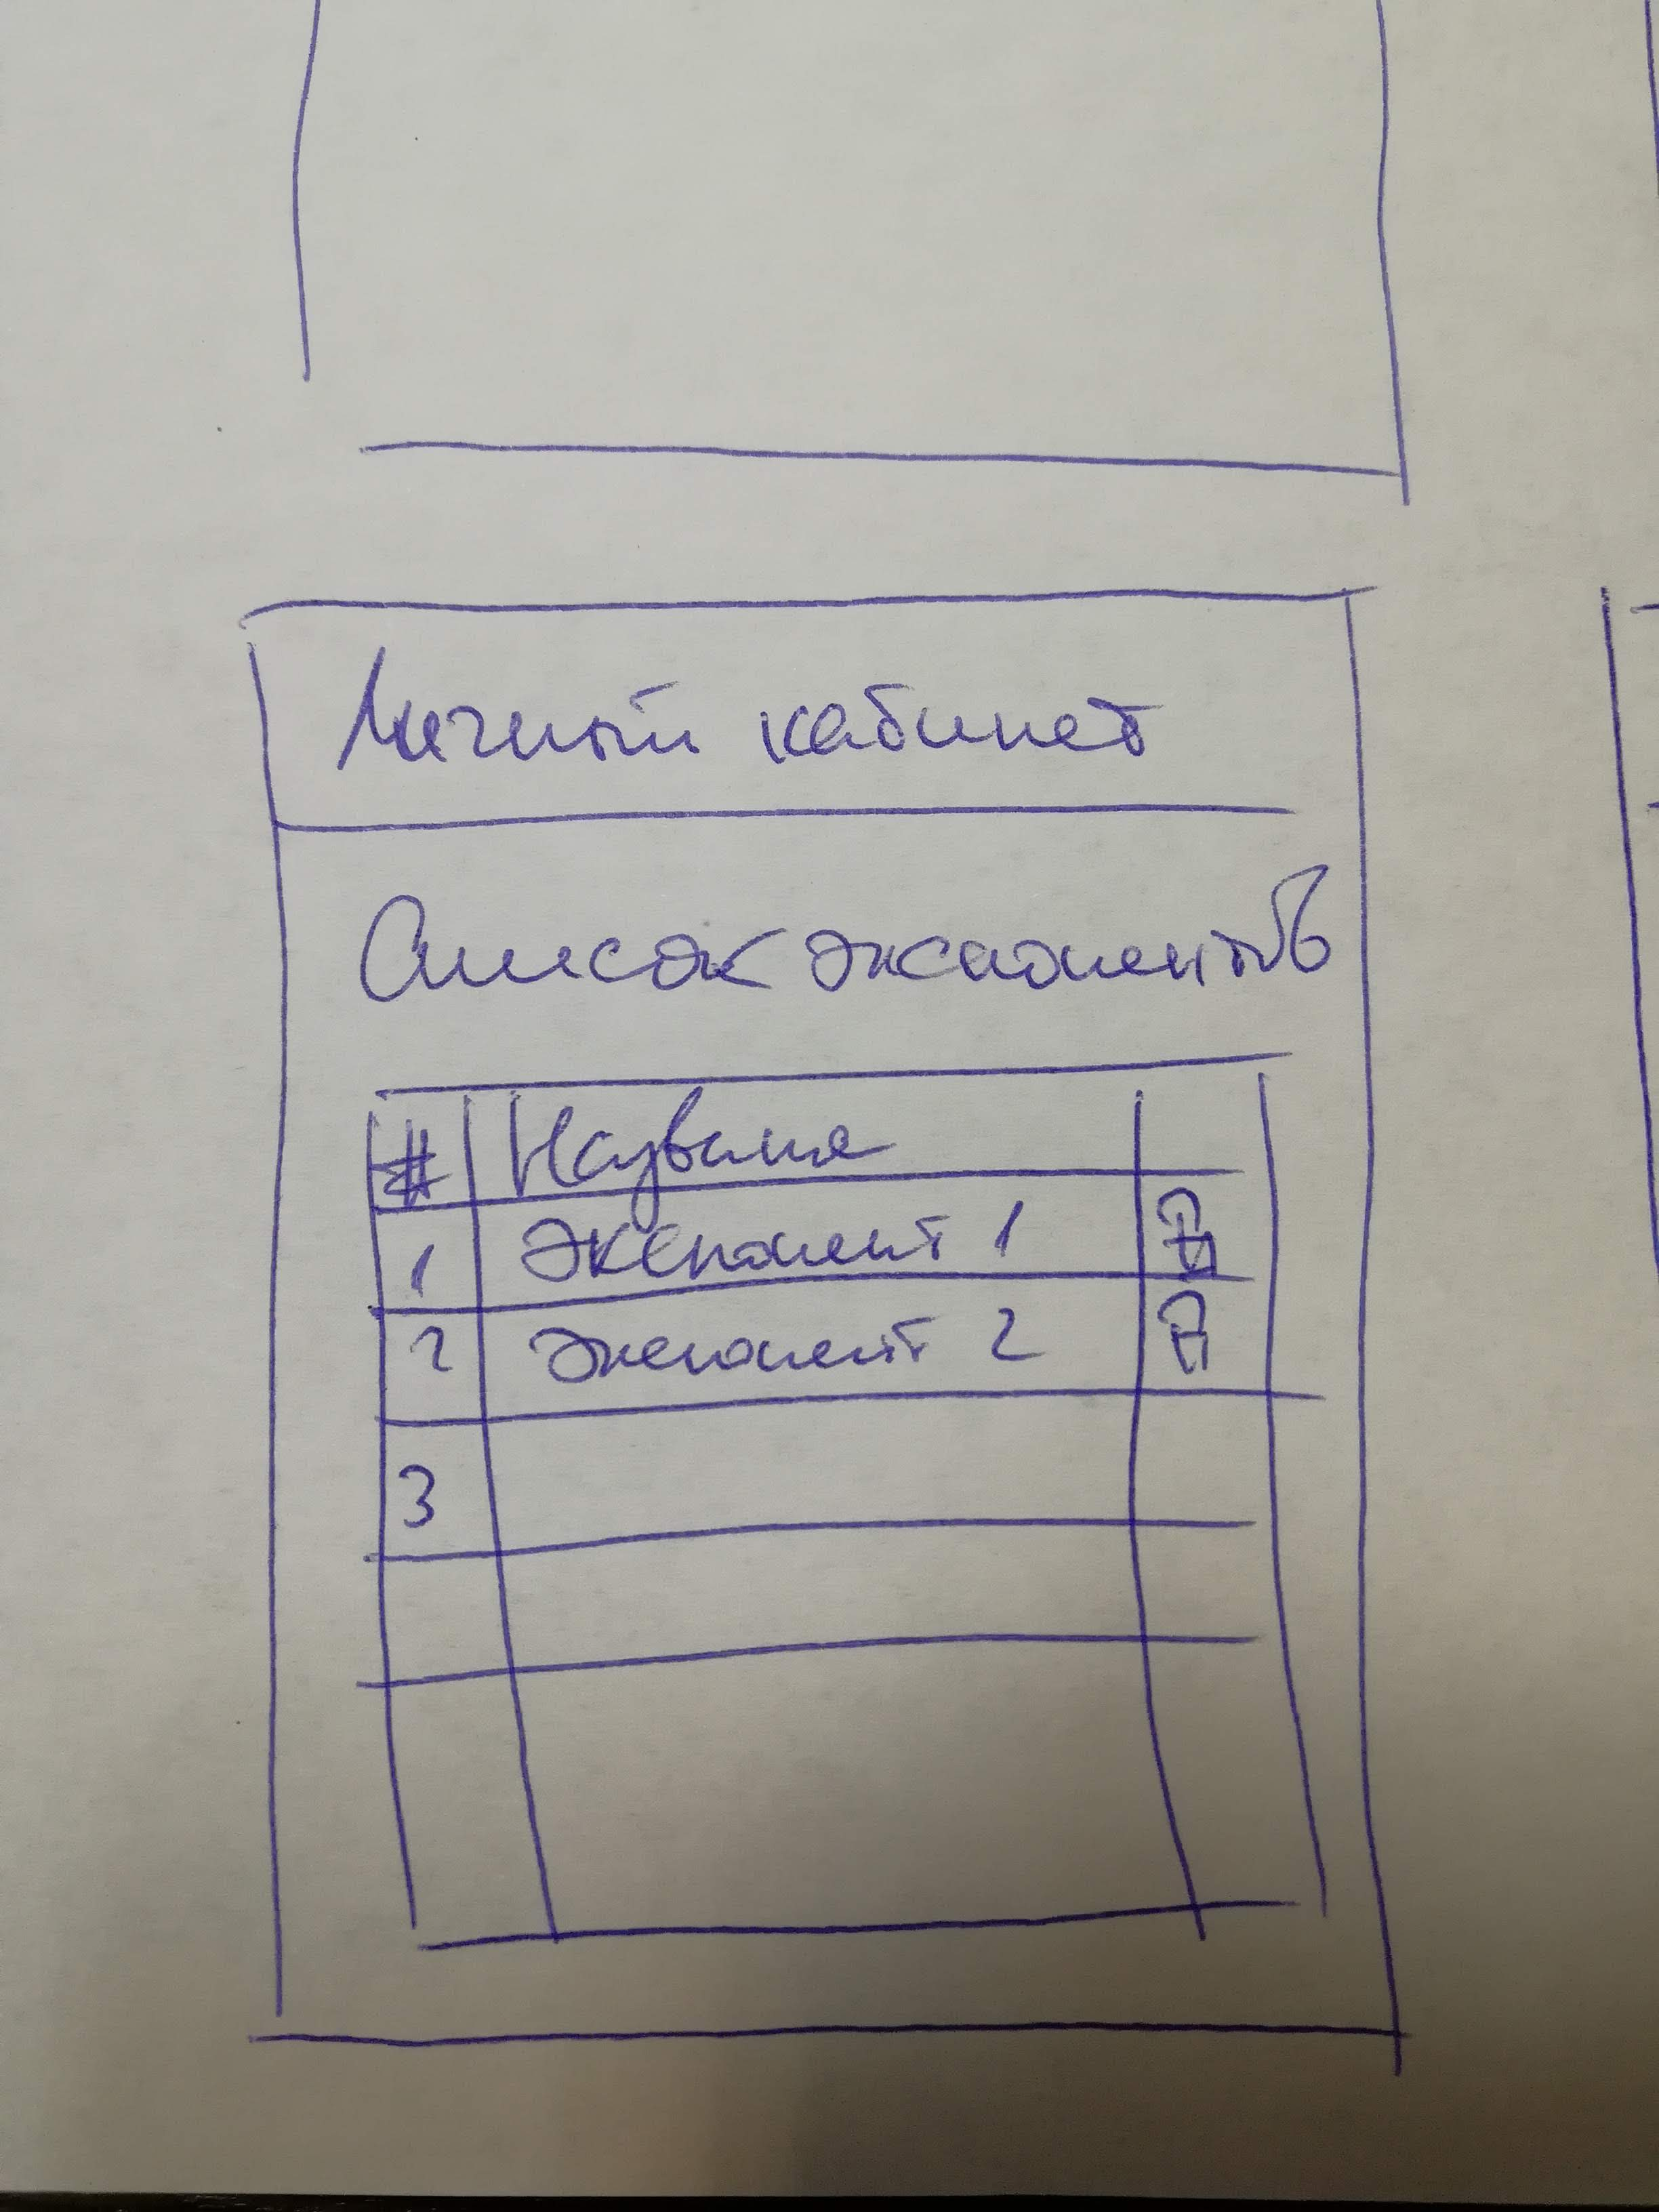 Личный кабинет
Список экспонентов
# Название
1 Экспонент 1
2 Экспонент 2
3